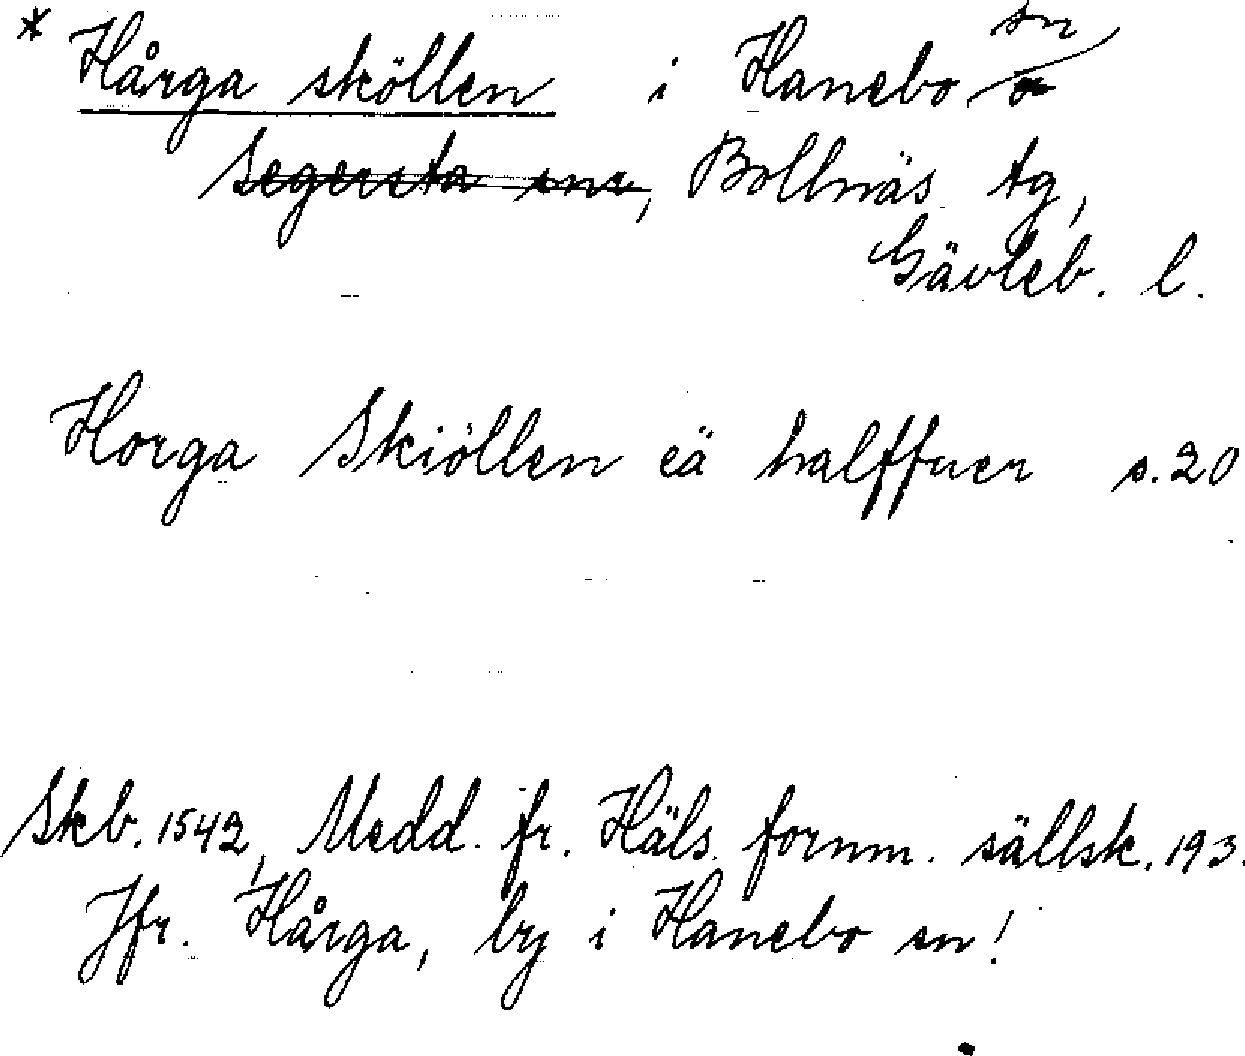 * Hårga sköllen i Hanebo sn
Segersta snr, Bollnäs tg,
Gävleb. l.
Horga Skiöllen eä halffuer s. 20
Skb. 1542, Medd. fr. Häls. fornm. sällsk. 193.
Jfr. Hårga, by i Hanebo sn!